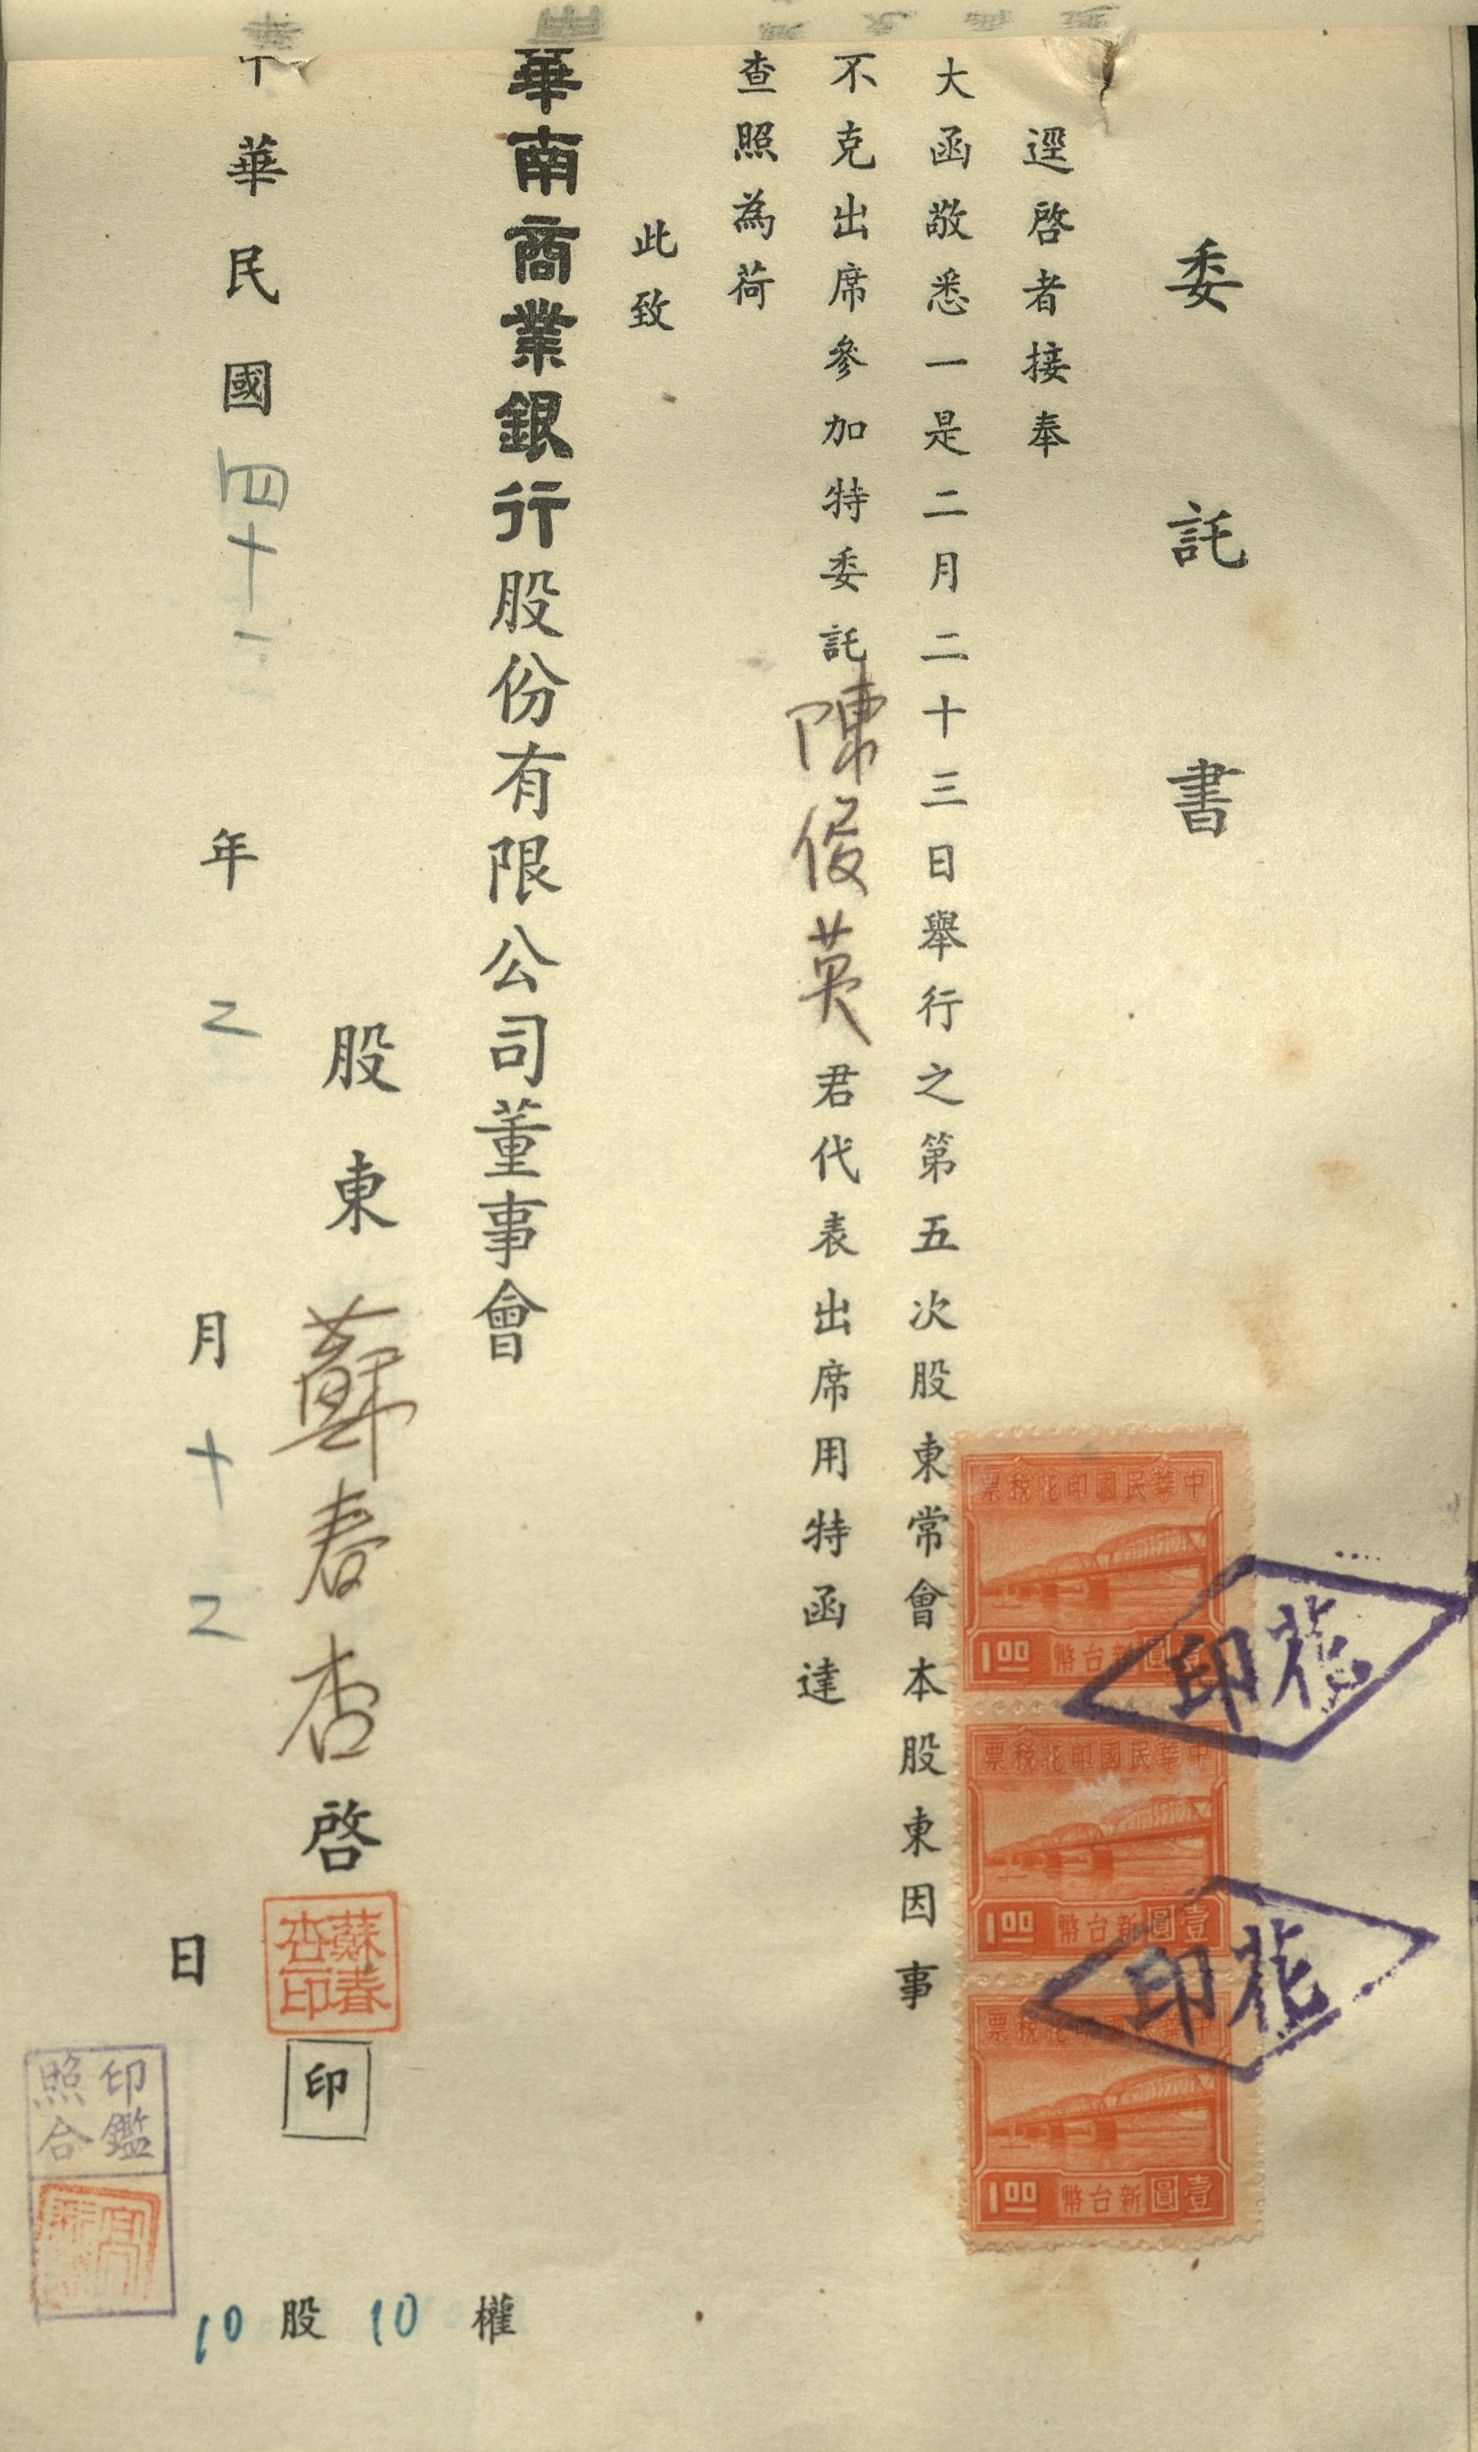 委託書
逕啓者接奉
大函敬悉一是二月二十三日舉行之第五次股東常會本股東因事
不克出席參加特委託陳俊英君代表出席用特函達
查照為荷
此致
華南商業銀行股份有限公司董事會
股東蘇春杏啓
蘇春杏印
印
中華民國四十二年二月十二日
10股10權
印鑑照合
中華民國印花稅票
新台幣壹圓
1.00
中華民國印花稅票
新台幣壹圓
1.00
中華民國印花稅票
新台幣壹圓
1.00
印花
印花